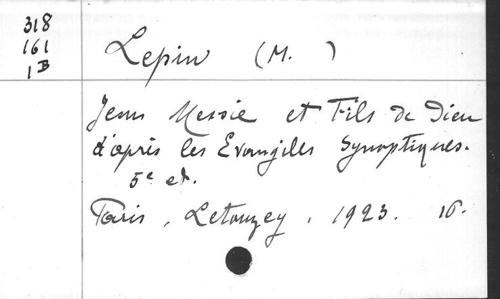 318
161
1B
Lepin (M. )
Jesus Messie et Fils de Dieu
d'après les Evangiles Synoptiques.
5e et.
Paris, Letouzey, 1923. 16.